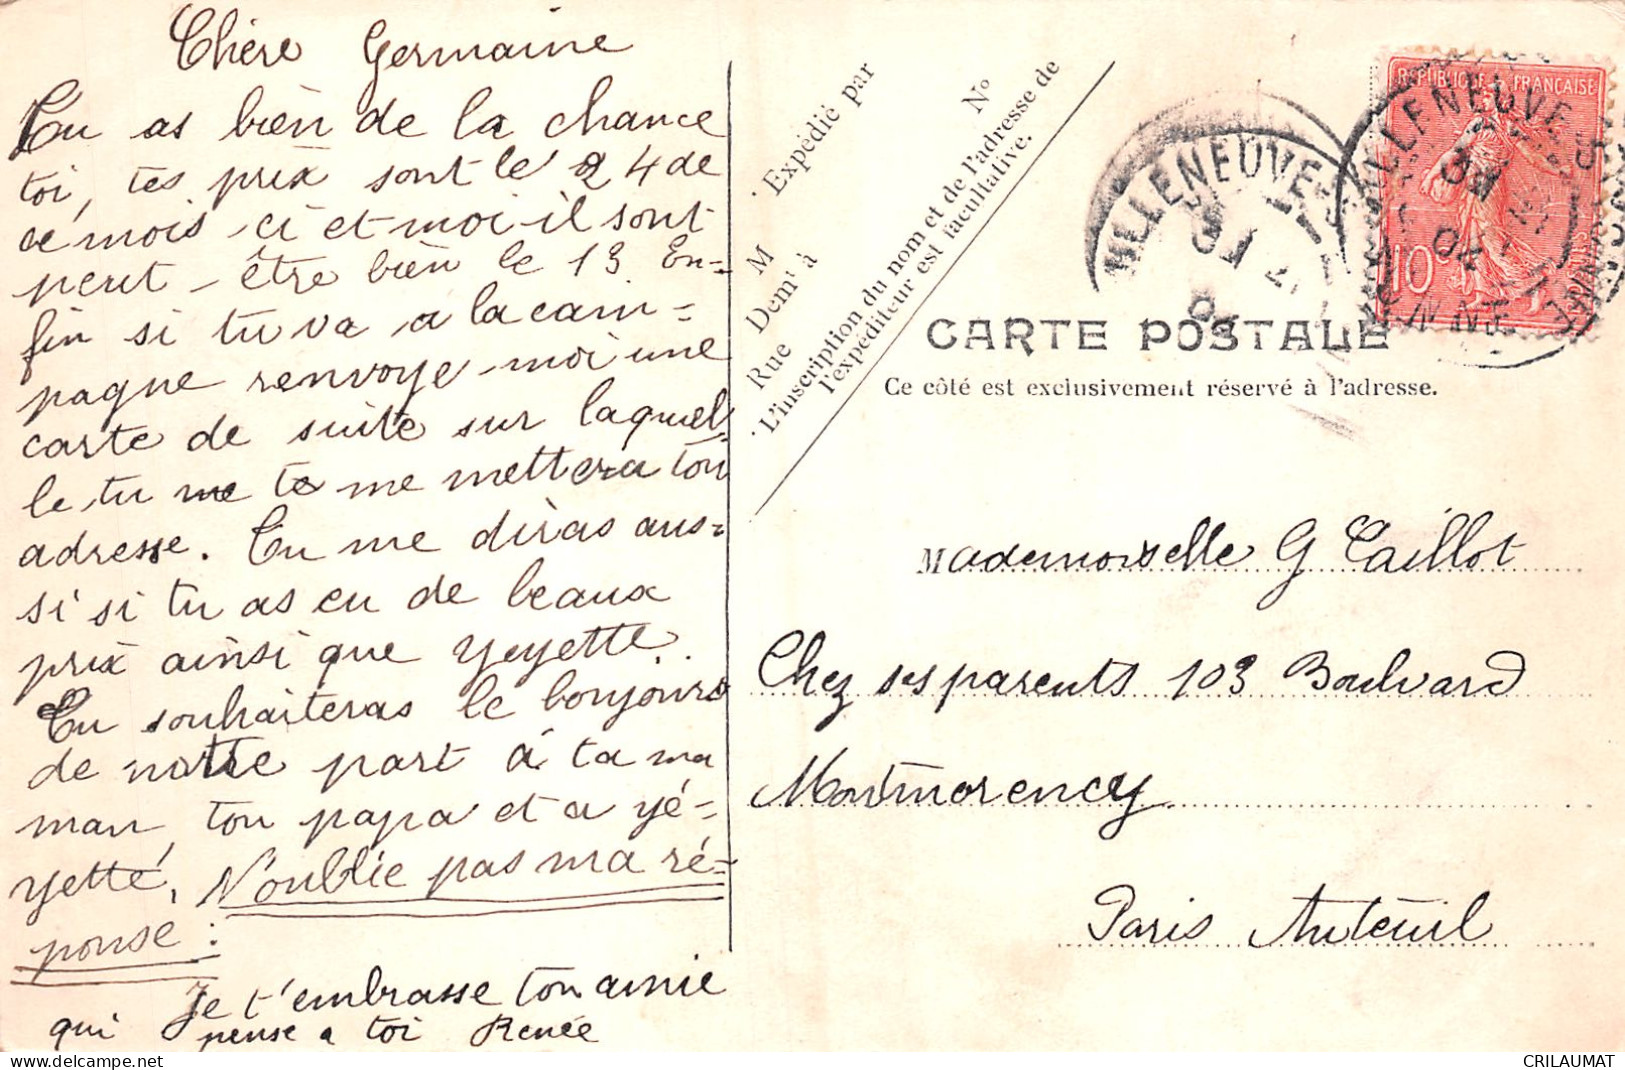 Chère Germaine
Tu as bien de la chance
toi, tes prix sont le 24 de
ce mois-ci et moi il sont
peut-être bien le 13 En=
fin si tu va a la cam=
pagne renvoye-moi une
carte de suite sur laquel=
le tu me te me mettera ton
adresse. Tu me diras aus=
si si tu as eu de beaux
prix ainsi que Yeyette..
Tu souhaiteras le bonjours
de notre part à ta ma
man, ton papa et a yé=
yette, N'oublie pas ma ré=
ponse :
Je t'embrasse ton amie
qui pense a toi Renée
Expédié par
M
Demt à
Rue
N°
L'inscription du nom et de l'adresse de
l'expéditeur est facultative.
VILLENEUVE
REPUBLIQUE FRANÇAISE
10c
VILLENEUVE
CARTE POSTALE
Ce côté est exclusivement réservé à l'adresse.
Mademoiselle G Taillot
Chez ses parents 103 Boulvard
Montmorency
Paris Auteuil
CRILAUMAT